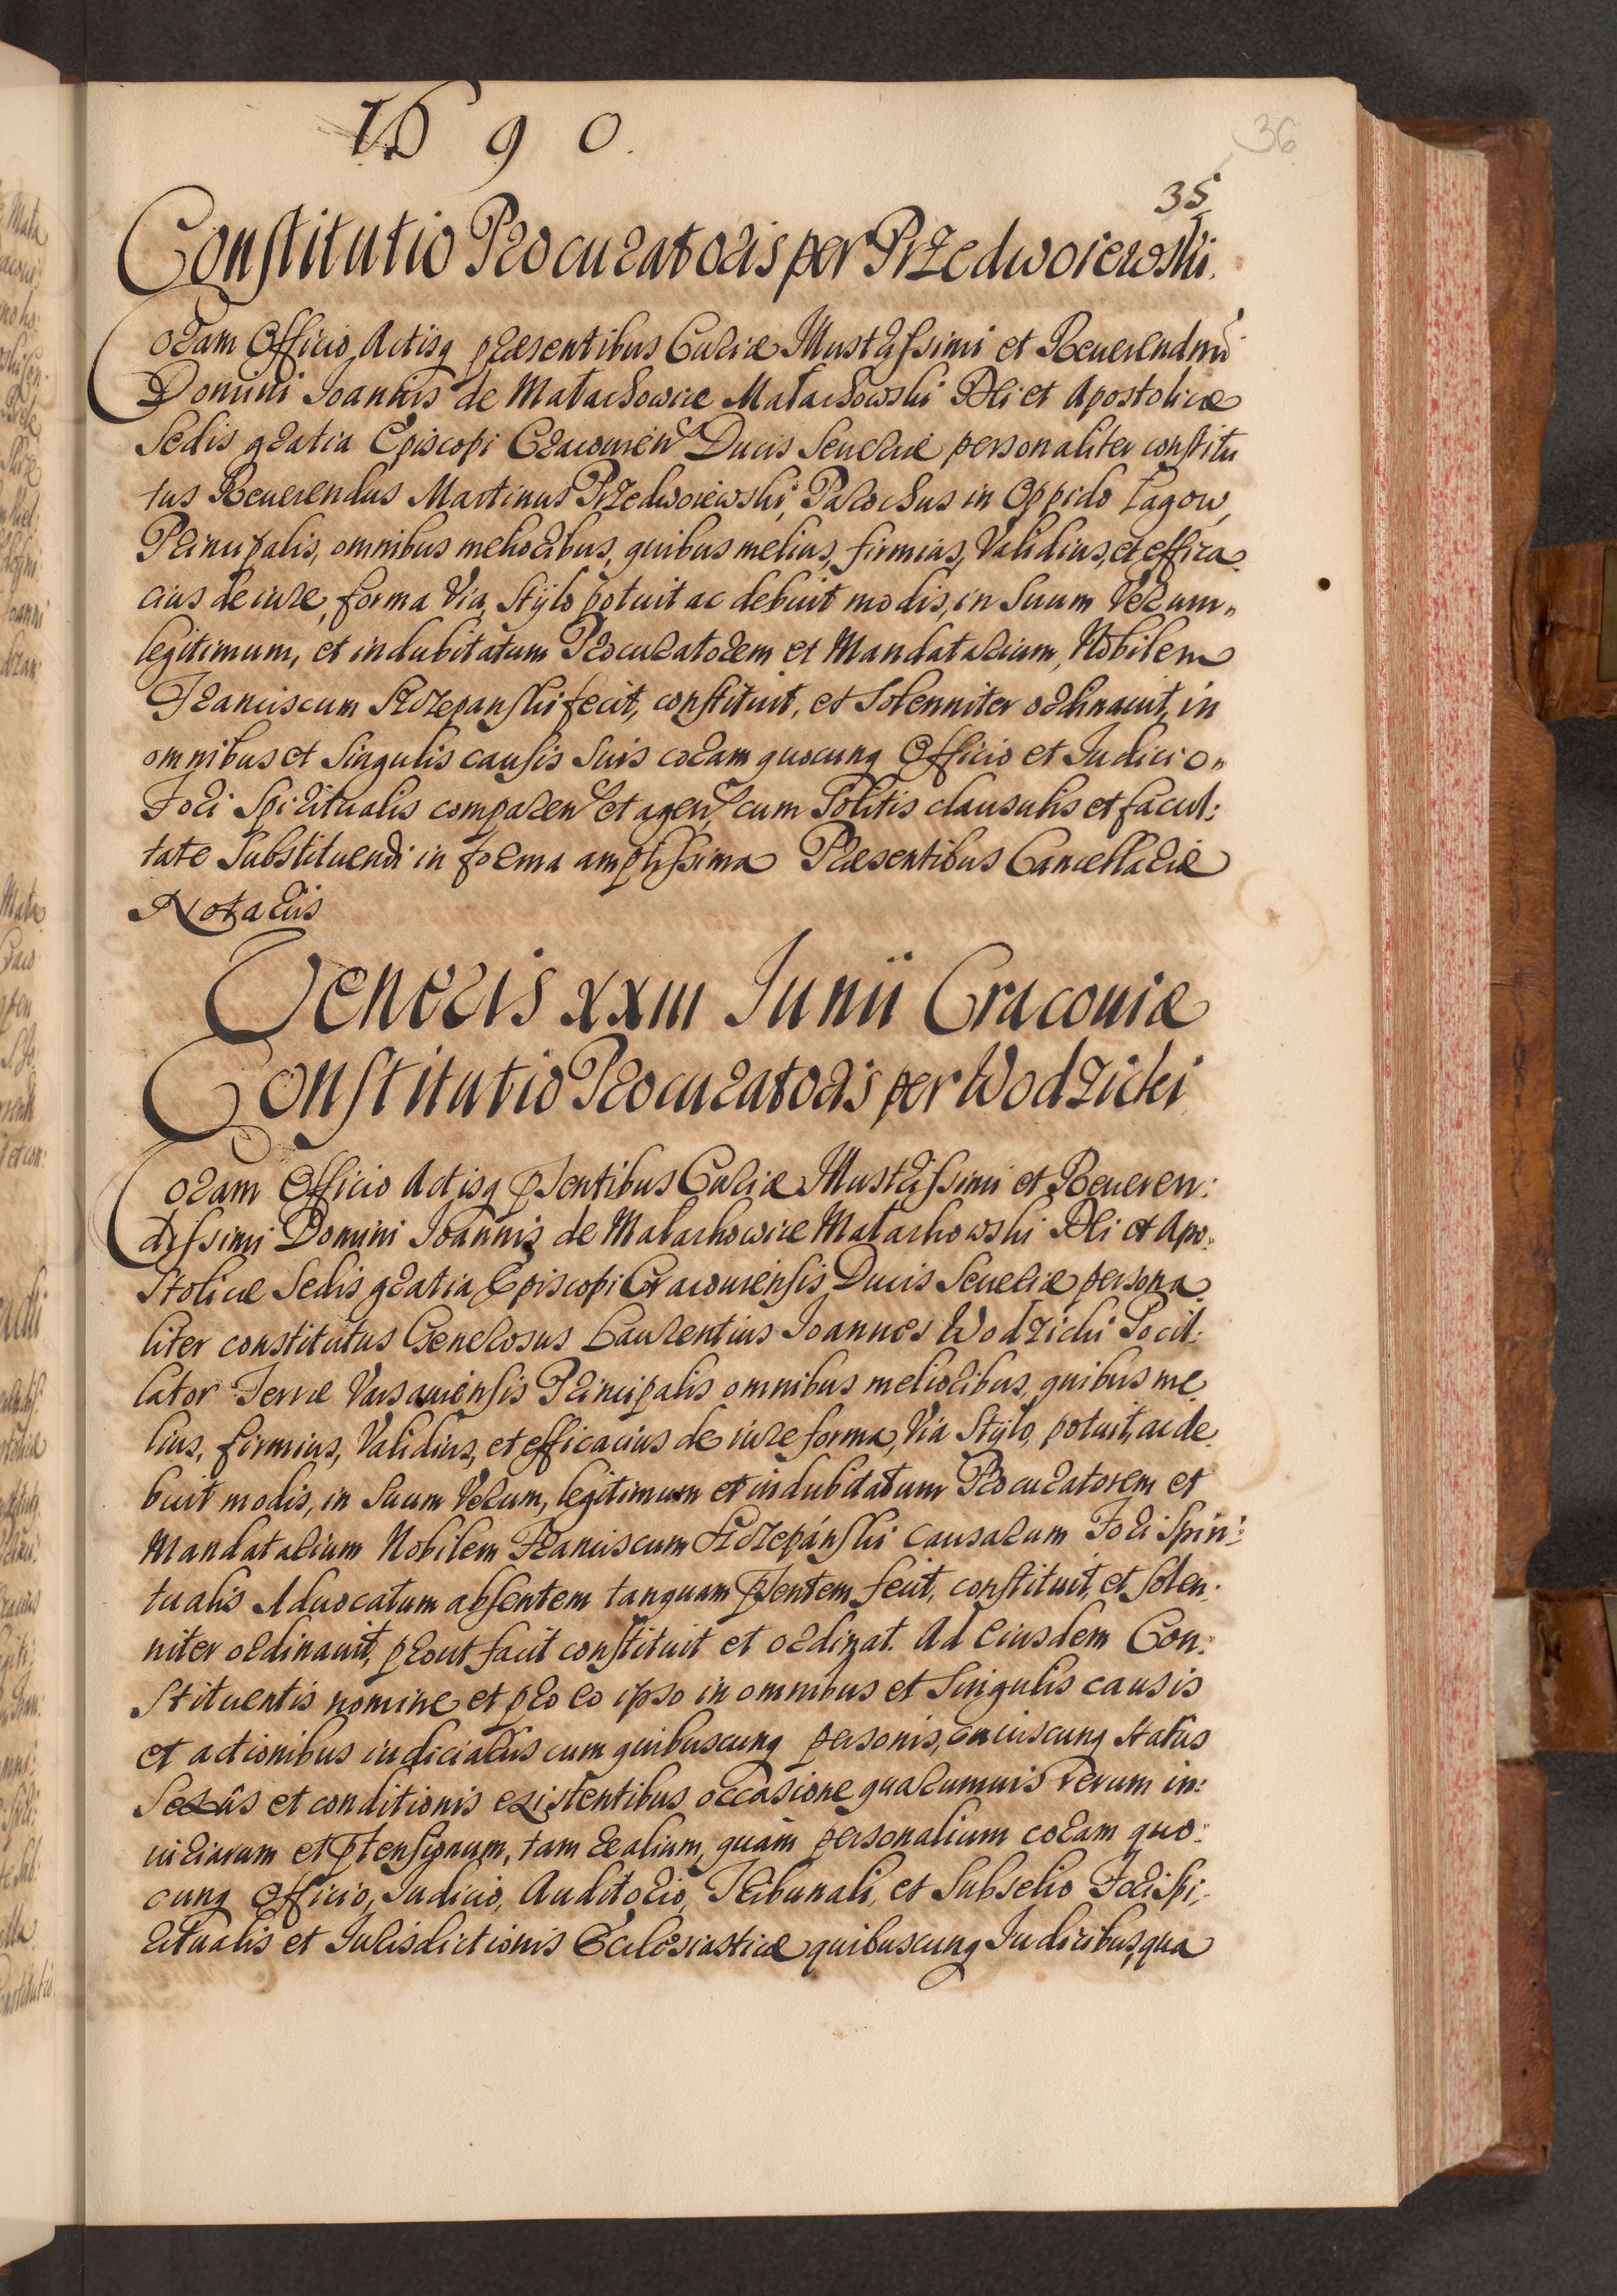 1690.
36
35
Constitutio Procuratoris per Przedwoiewski.
Coram Officio, Actisq praesentibus Curiae Illustrissimi et Reuerendmi
Domini Joannis de Małachowice Małachowski Dei et Apostolicae
Sedis gratia Episcopi Cracouien Ducis Seueriae personaliter constitu
tus Reuerendus Martinus Przedwoiewski, Parochus in Oppido Łagow,
Principalis, omnibus melioribus, quibus melius, firmius, Validius, et effica
cius de iure, forma Via, Stylo potuit ac debuit modis, in Suum Verum„
legitimum, et indubitatum Procuratorem et Mandatarium, Nobilem
Franciscum Szczepanski fecit, constituit, et Solenniter ordinauit, in
omnibus et Singulis causis Suis coram quocunq Officio et Judicio„
Fori Spiritualis comparen et agen, cum Solitis clausulis et facul:
tate Substituendi in forma amplissima Praesentibus Cancellariae
Notariis
Veneris XXIII Junii Cracouiae
Constitutio Procuratoris per Wodzicki
Coram Officio Actisq pSentibus Curiae Illustrissimi et Reueren:
dissimi Domini Joannis de Małachowice Małachowski Dei et Apo:
Stolicae Sedis gratia Episcopi Cracouiensis Ducis Seueriae persona
liter constitutus Generosus Laurentius Joannes Wodzicki Pocil:
lator Terrae Varsauiensis Principalis omnibus melioribus, quibus me
lius, firmius, Validius, et efficacius de iure forma, Via Stylo, potuit, ac de
buit modis, in Suum Verum, legitimum et indubitatum Procuratorem et
Mandatarium Nobilem Franciscum Szczepánski causarum Fori Spiri:
tualis Aduocatum absentem tanquam pSentem fecit, constituit, et Solen:
niter ordinauit, prout facit constituit et ordinat. Ad Eiusdem Con:
Stituentis nomine et pro eo ipso in omnibus et Singulis causis
et actionibus iudiciariis cum quibuscunq personis, cuiuscunq Statûs
Sexûs et conditionis existentibus occasione quarumuis rerum in:
iuriarum et ptensionum, tam realium, quàm personalium coram quo:
cunq Officio, Judicio, Auditorio, Tribunali, et Subselio Fori Spi:
ritualis et Jurisdictionis Ecclesiasticae quibuscunq Judicibus, qua